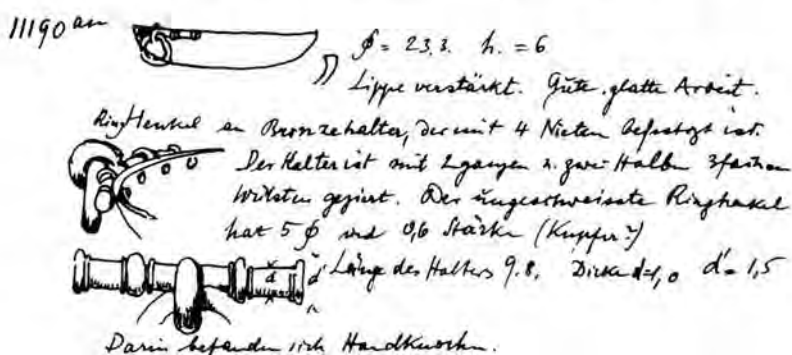 11190 an
∮ = 23,3. h. = 6
Lippe verstärkt. Gute, glatte Arbeit.
Ring Henkel an Bronzehalter, der mit 4 Nieten befestigt ist.
Der Halter ist mit 2 ganzen u. zwei Halben 3fachen
Wülsten geziert. Der ungeschweisste Ringhenkel
hat 5 ∮ und 0,6 Stärke (Kupfer?)
d d' Länge des Halters 9.8. Dicke d=1,0 d'= 1,5
Darin befanden sich Handknochen.